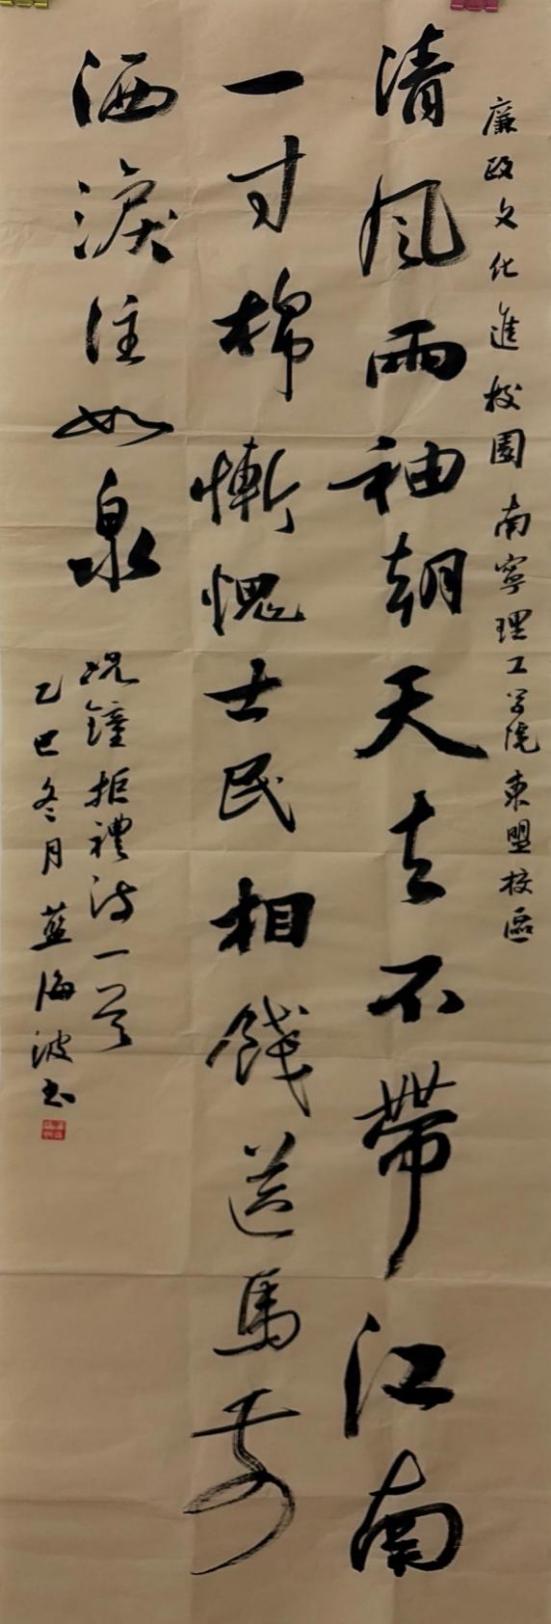 廉政文化進校園 南寧理工学院東盟校區
清風兩袖朝天去不帶江南
一寸棉慚愧士民相餞送馬前
洒淚注如泉
况鐘拒禮詩一首
乙巳冬月 藍海波书